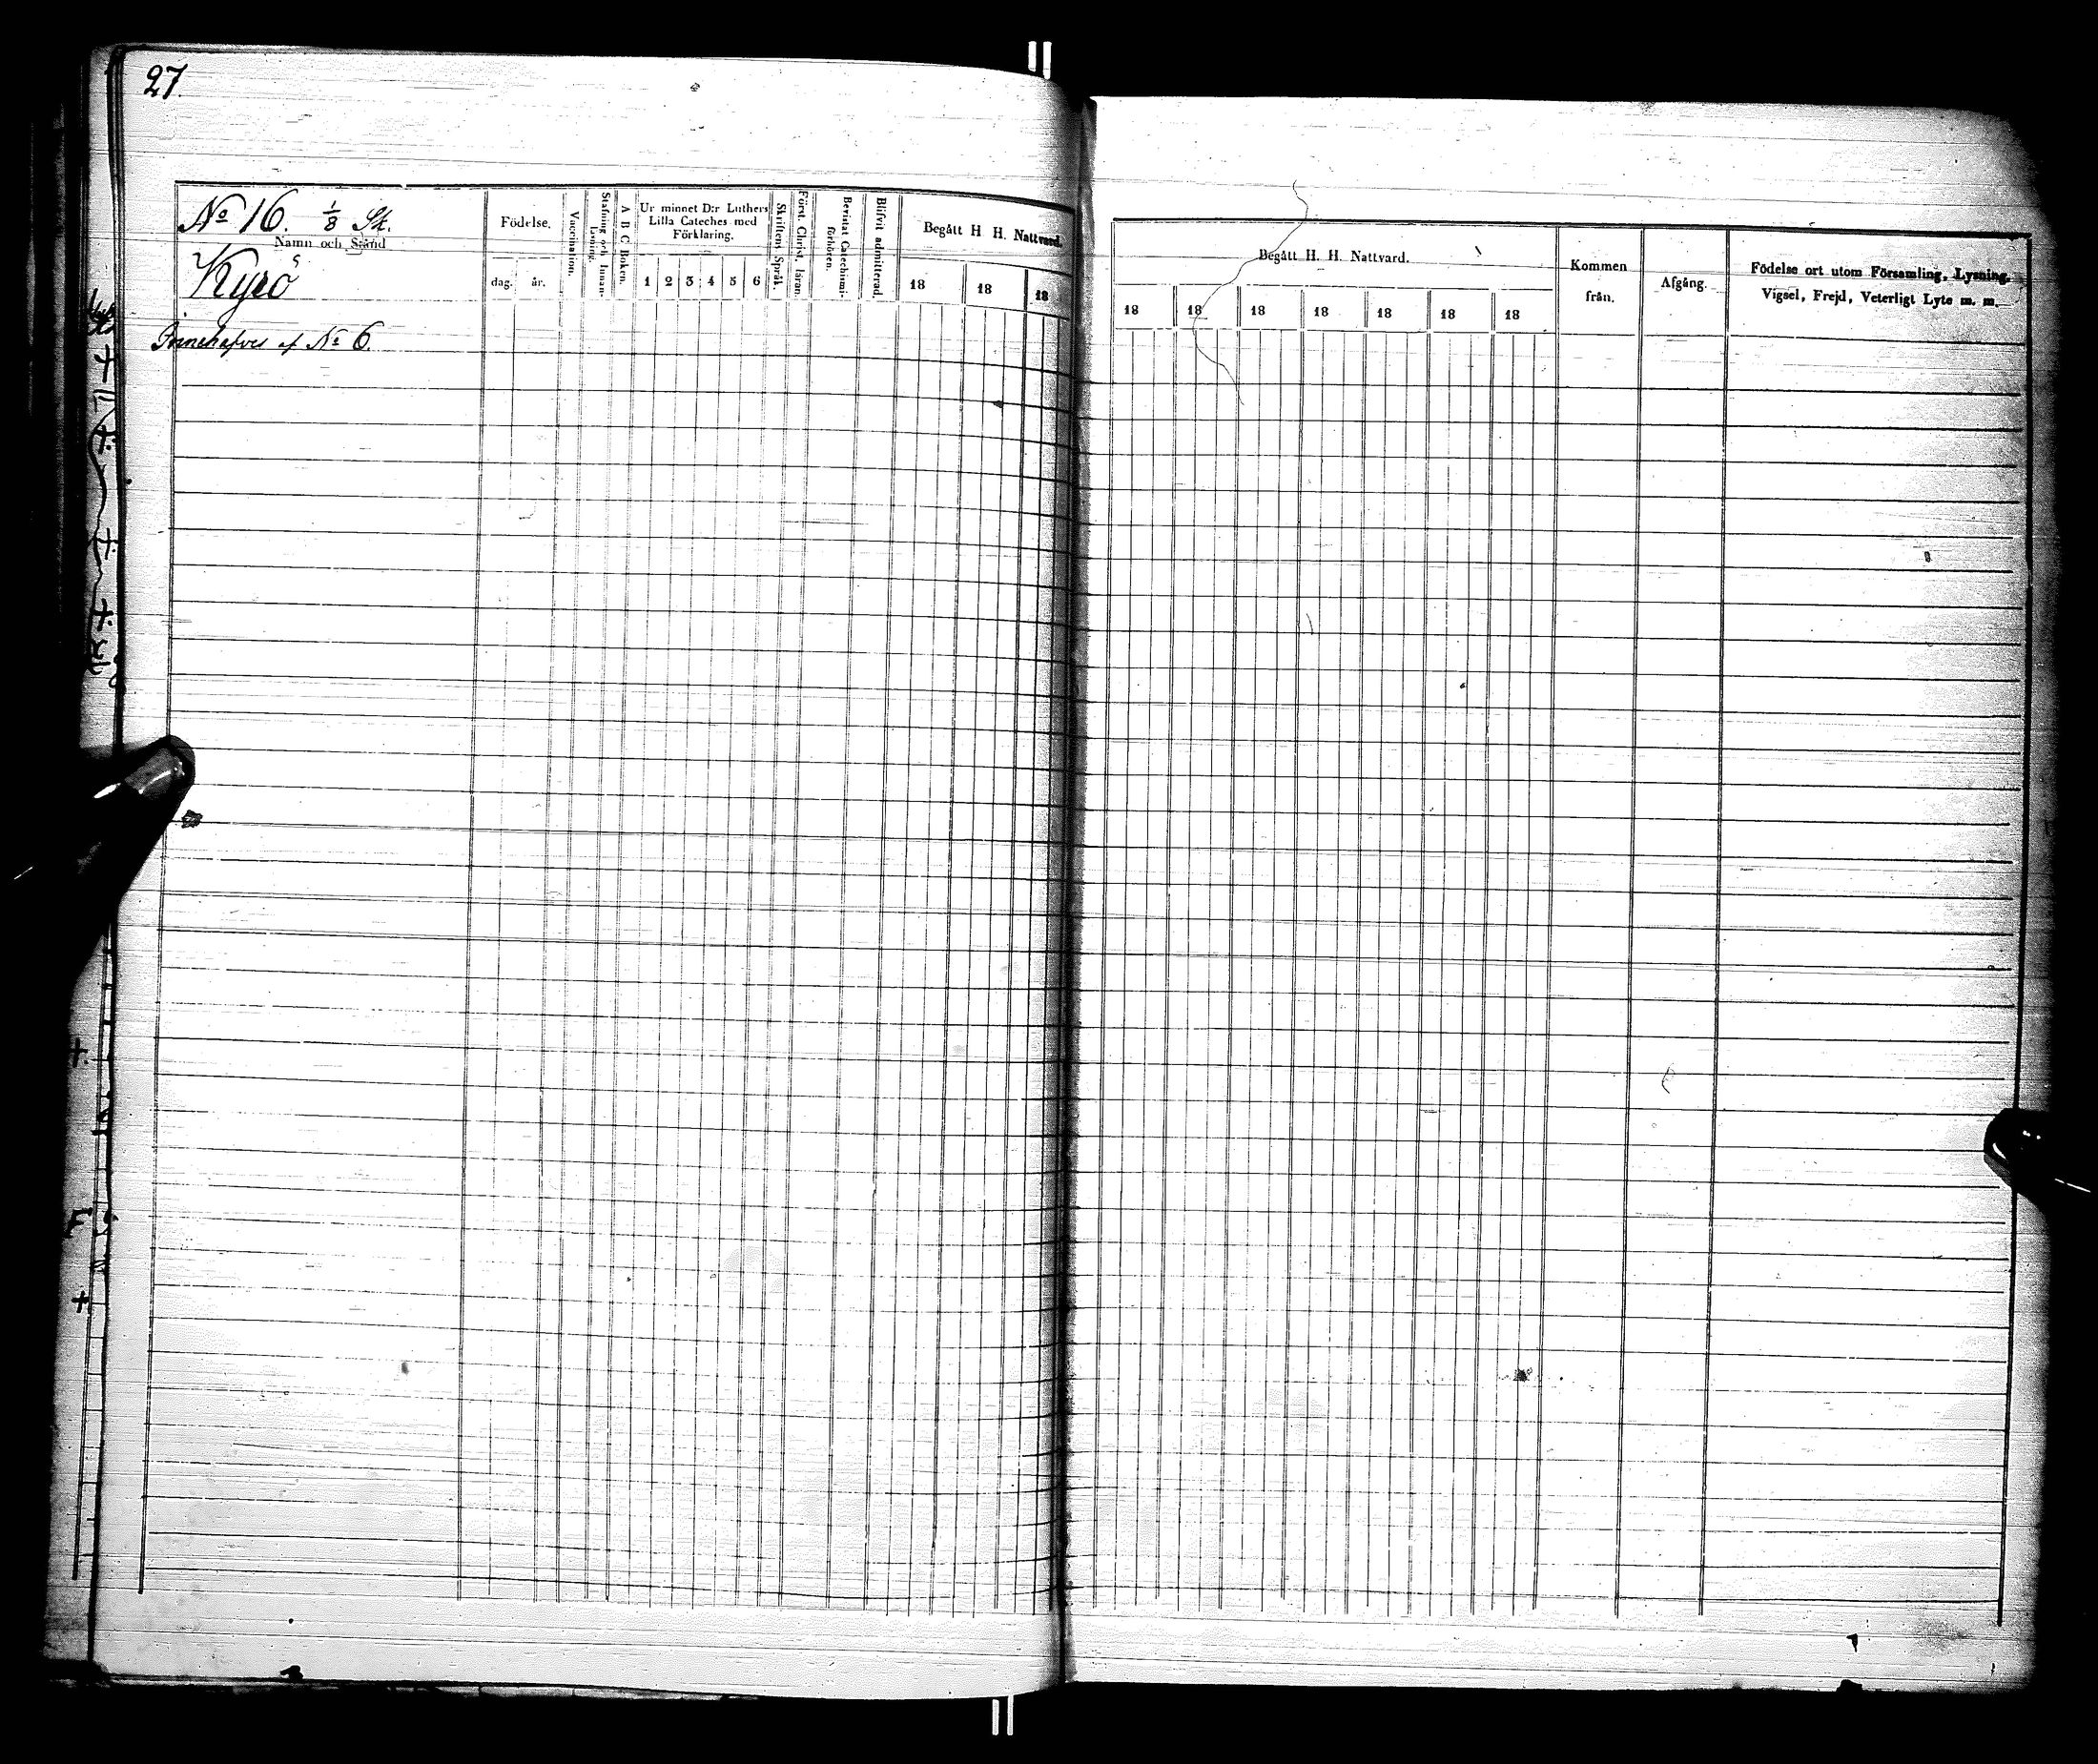 27.
No 16. 1/8 Sk.
Namn och Stånd
Kyrö
af No 6.
Födelse.
dag. år.
Vaccination.
Stafning och Innan-
läsning.
A B C Boken.
Ur minnet D:r Luthers
Lilla Cateches med
Förklaring.
1 2 3 4 5 6
Skriftens Språk.
Först. Christ. läran.
Bevistat Catechismi-
förhören.
Blifvit admitterad.
Begått H H. Nattvard.
18 18 18
Begått H. H. Nattvard.
18 18 18 18 18 18 18
Kommen
från.
Afgång.
Födelse ort utom Församling, Lysning,
Vigsel, Frejd, Veterligt Lyte m. m.